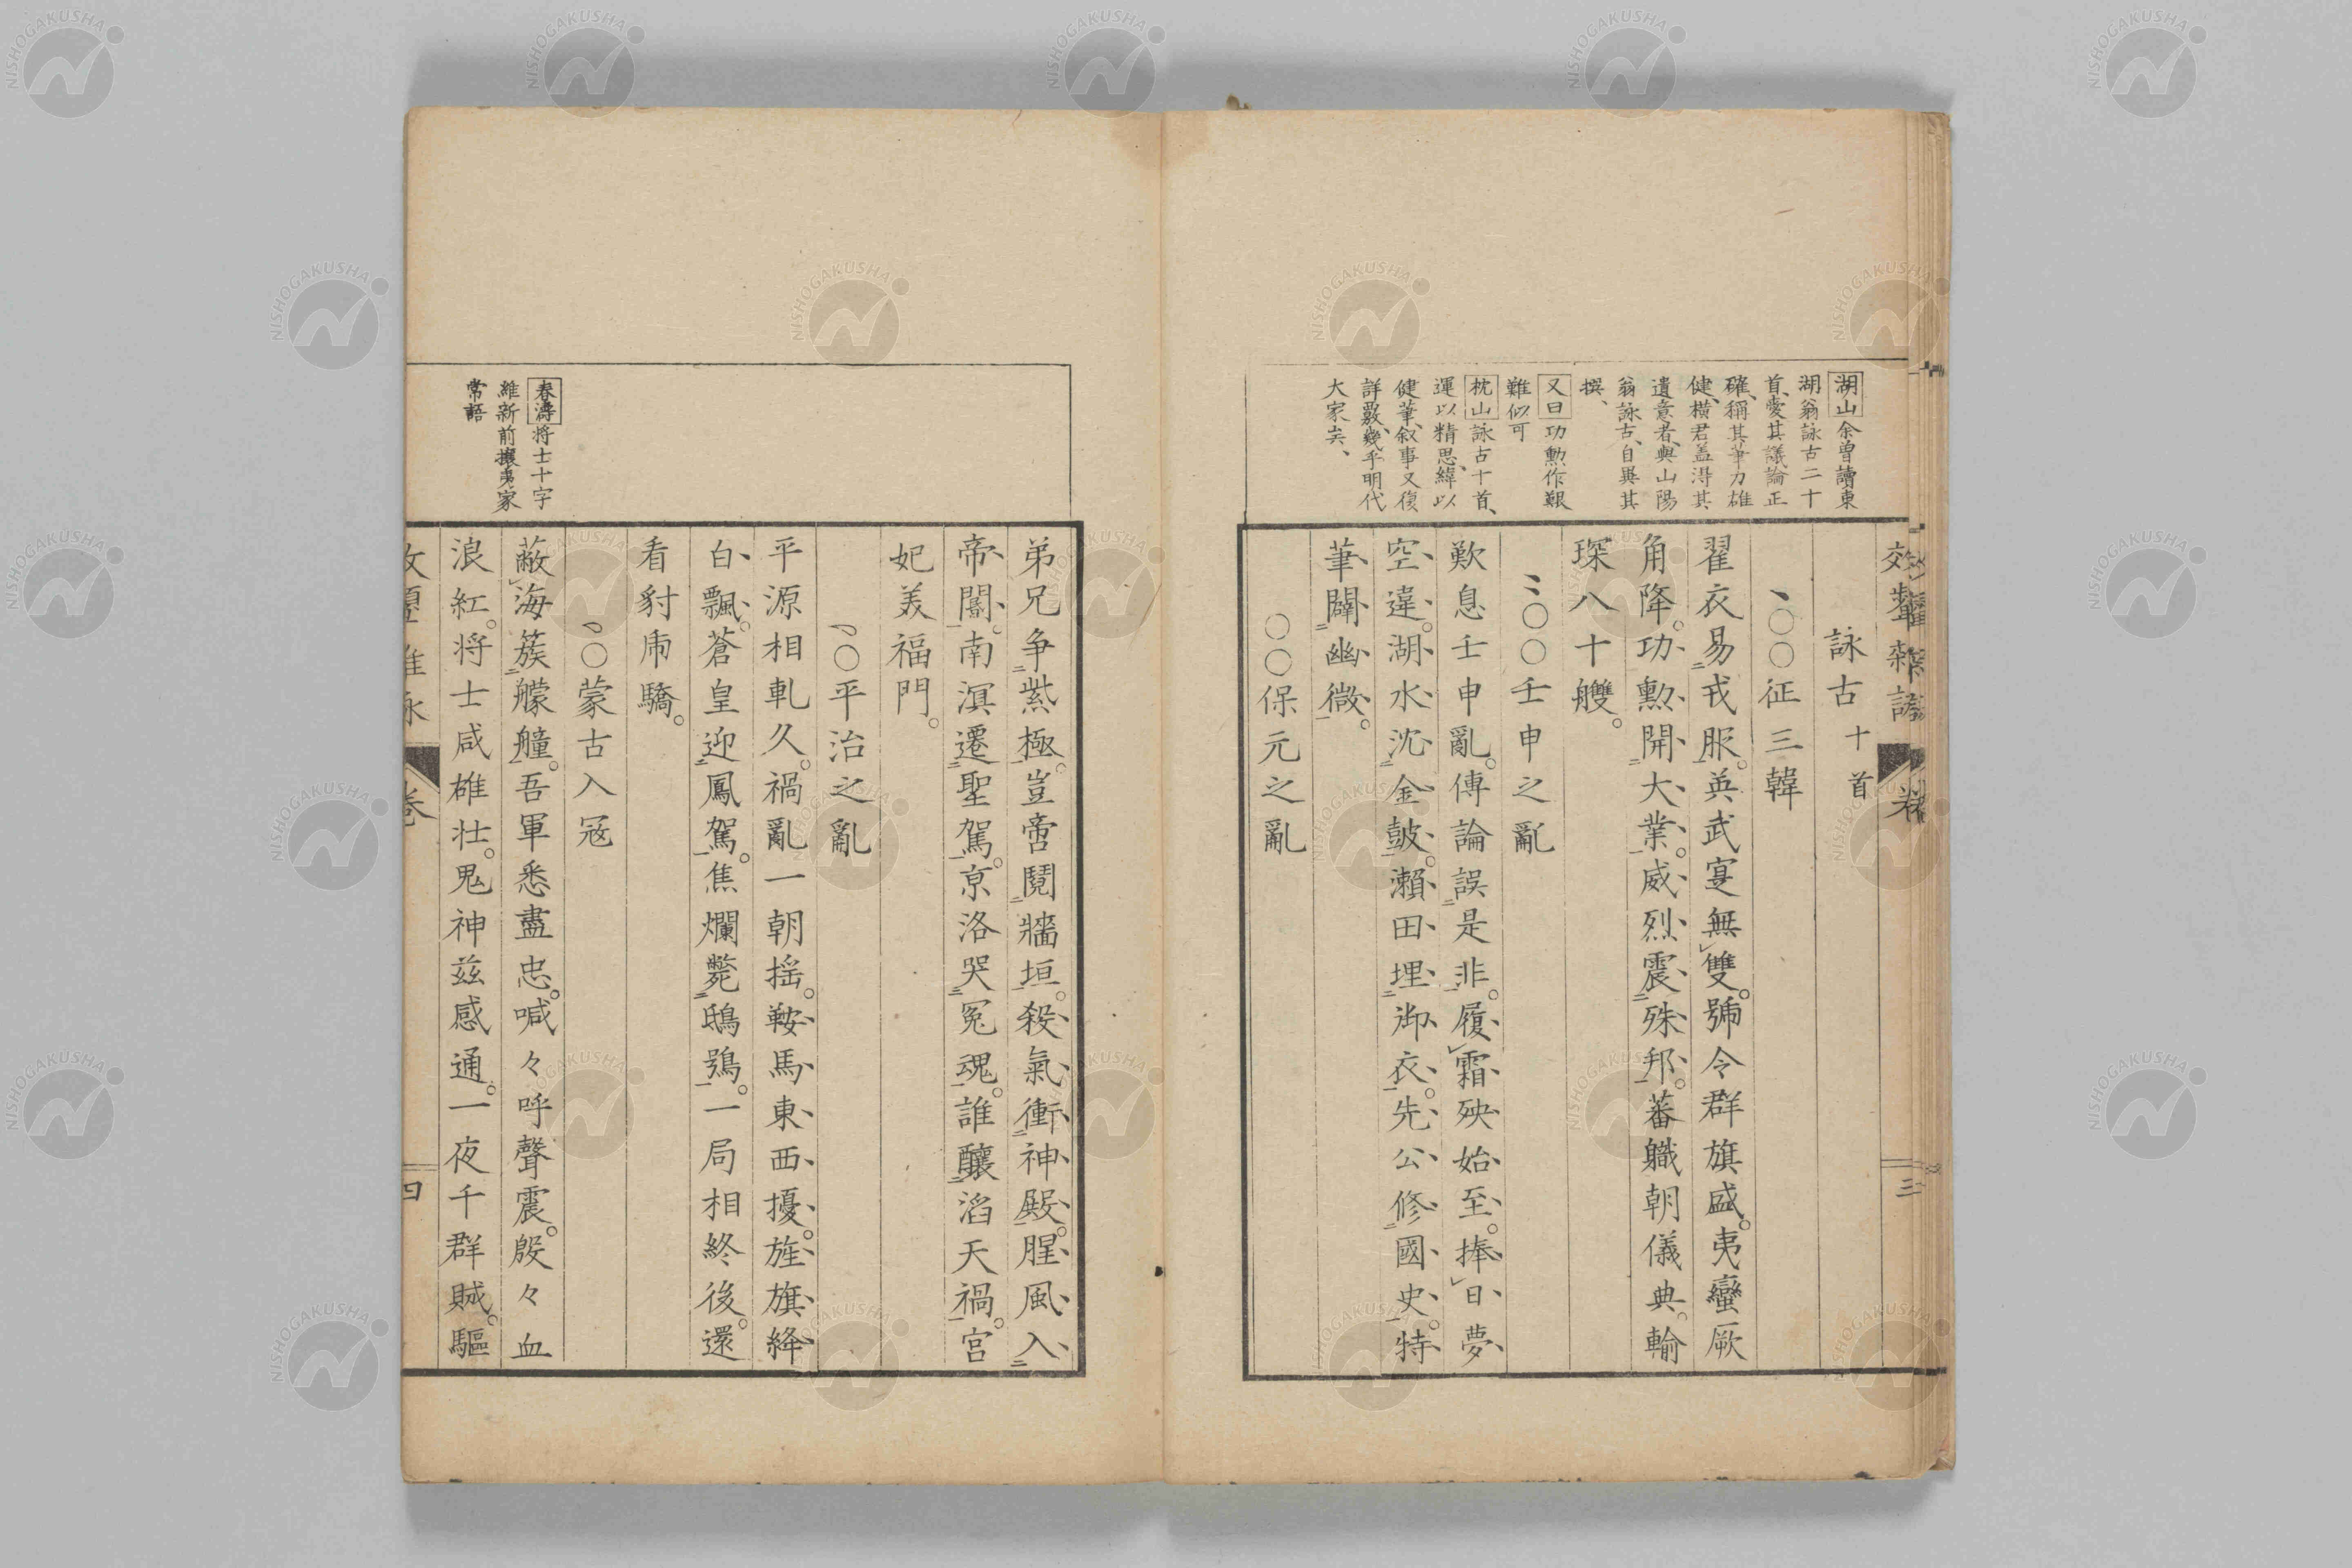 湖山余曽讀東
湖翁詠古二十
首、愛其議論正
確、稱其筆力雄
健、横君盖淂其
遺意者、與山陽
翁詠古、自異其
撰、
又曰功勲作艱
難似可
枕山詠古十首、
運以精思、緯以
健筆、叙事又復
詳覈、幾乎明代
大家矣、
詠古 十首
、〇〇征三韓
翟衣易戎服。英武寔無雙。號令群旗盛。夷蠻厥
角降。功勲開大業。威烈震殊邦。蕃職朝儀典。輸
琛八十艭。
〻〇〇壬申之亂
歎息壬申亂。傳論誤是非。履霜殃始至。捧日夢
空違。湖水沈金鼓。瀬田埋御衣。先公修國史。特
筆闡幽微。
〇〇保元之亂
弟兄争紫極。豈啻鬩牆垣。殺氣衝神殿。腥風入
帝閽。南溟遷聖駕。京洛哭冤魂。誰釀滔天禍。宮
妃美福門。
、〇平治之亂
平源相軋久。禍亂一朝揺。鞍馬東西擾。旌旗絳
白飄。蒼皇迎鳳駕。焦爛斃鴟鴞。一局相終後。還
看豺虎驕。
、〇蒙古入冦
春濤将士十字
維新前攘夷家
常語
蔽海簇艨艟。吾軍悉盡忠。喊々呼聲震。殷々血
浪紅。将士咸雄壮。鬼神茲感通。一夜千群賊。驅
三
NISHOGAKUSHA